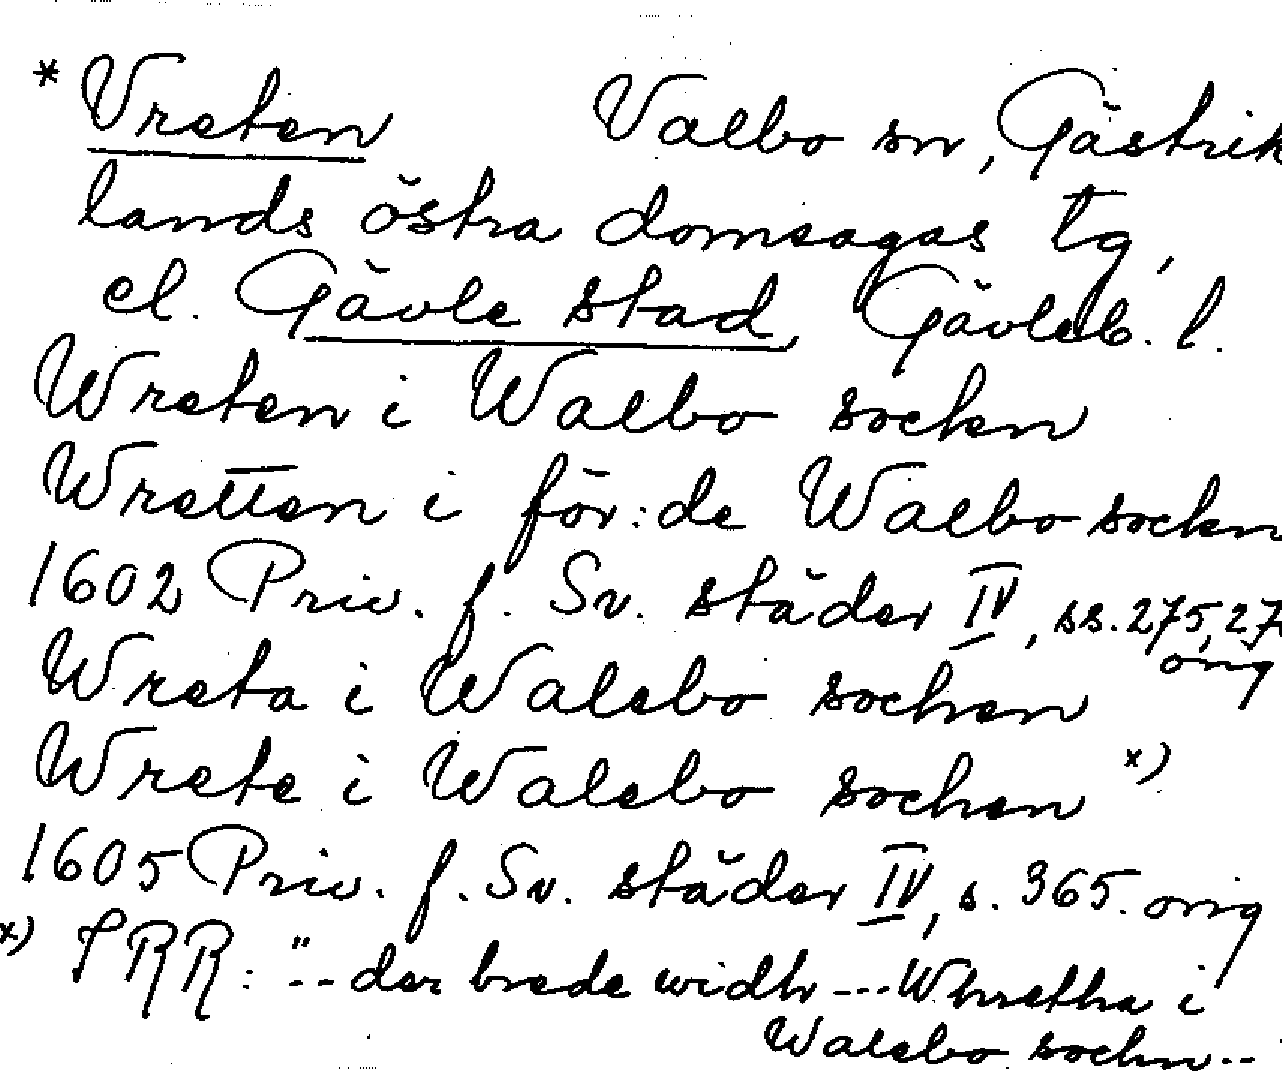 * Vreten Valbo sn, Gästrik
lands östra domsagas tg,
el. Gävle stad, Gävleb. l.
Wreten i Walbo sockn
Wretten i för:de Walbo sockn
1602 Priv. f. Sv. städer IV, ss. 275, 27
orig
Wreta i Walebo sochen
Wrete i Walebo sochen x)
1605 Priv. f. Sv. städer IV, s. 365. orig
x) SRR: "-- der brede widh --- Whretha i
Walebo sochn --